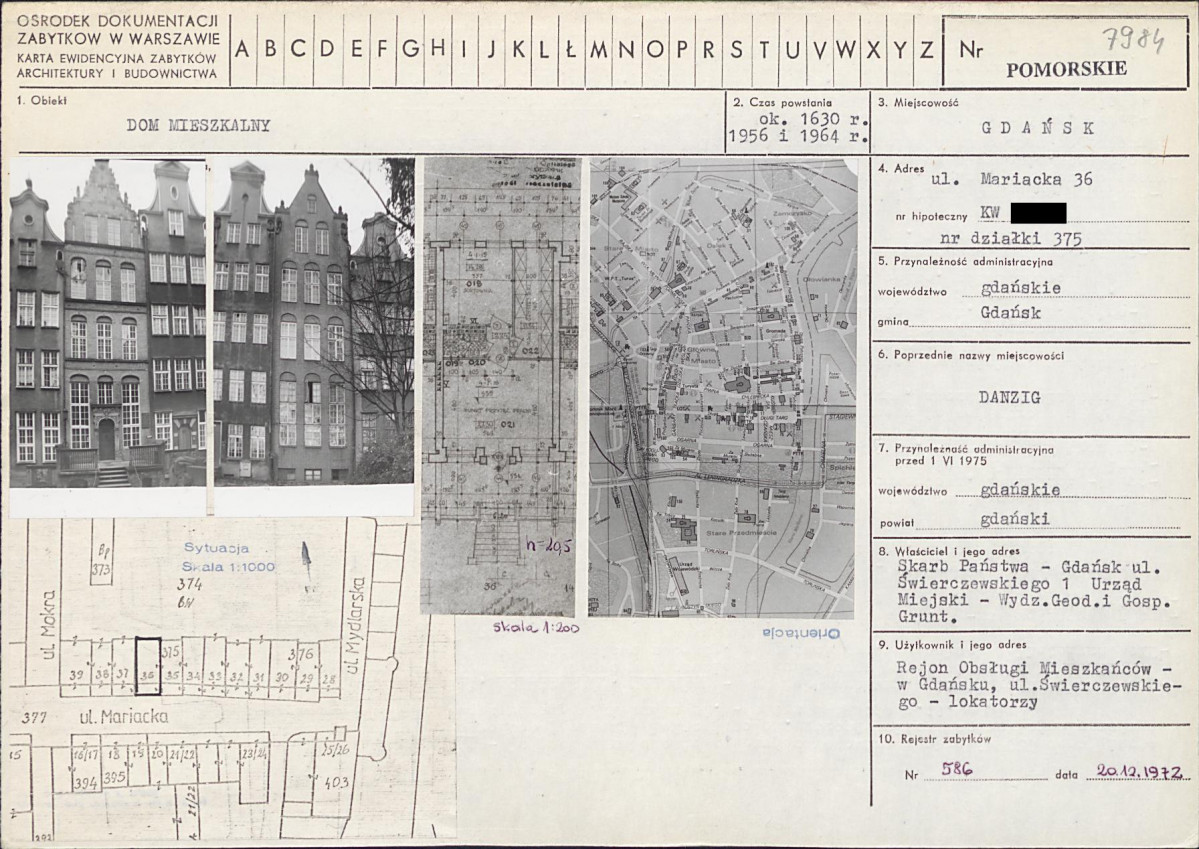 OŚRODEK DOKUMENTACJI
ZABYTKÓW W WARSZAWIE
KARTA EWIDENCYJNA ZABYTKÓW
ARCHITEKTURY I BUDOWNICTWA
A B C D E F G H I J K L Ł M N O P R S T U V W X Y Z
Nr 7984
POMORSKIE
1. Obiekt
DOM MIESZKALNY
2. Czas powstania
ok. 1630 r.
1956 i 1964 r.
3. Miejscowość
GDAŃSK
4. Adres
ul. Mariacka 36
nr hipoteczny KW
nr działki 375
5. Przynależność administracyjna
województwo gdańskie
gmina Gdańsk
6. Poprzednie nazwy miejscowości
DANZIG
7. Przynależność administracyjna
przed 1 VI 1975
województwo gdańskie
powiat gdański
8. Właściciel i jego adres
Skarb Państwa - Gdańsk ul.
Świerczewskiego 1 Urząd
Miejski - Wydz.Geod.i Gosp.
Grunt.
9. Użytkownik i jego adres
Rejon Obsługi Mieszkańców -
w Gdańsku, ul.Świerczewskie-
go - lokatorzy
10. Rejestr zabytków
Nr 586 data 20.12.1972
019
020
022
021
h=20,5
36
skala 1:200
Stare Przedmieście
OGARNA
Orientacja
Sytuacja
Skala 1:1000
Bp
373
374
BN
ul. Mokra
ul. Mydlarska
375
376
39 38 37 36 35 34 33 32 31 30 29 28
377
ul. Mariacka
15
16/17 18 19 20 21/22 23/24 25/26
394 395
403
21/22